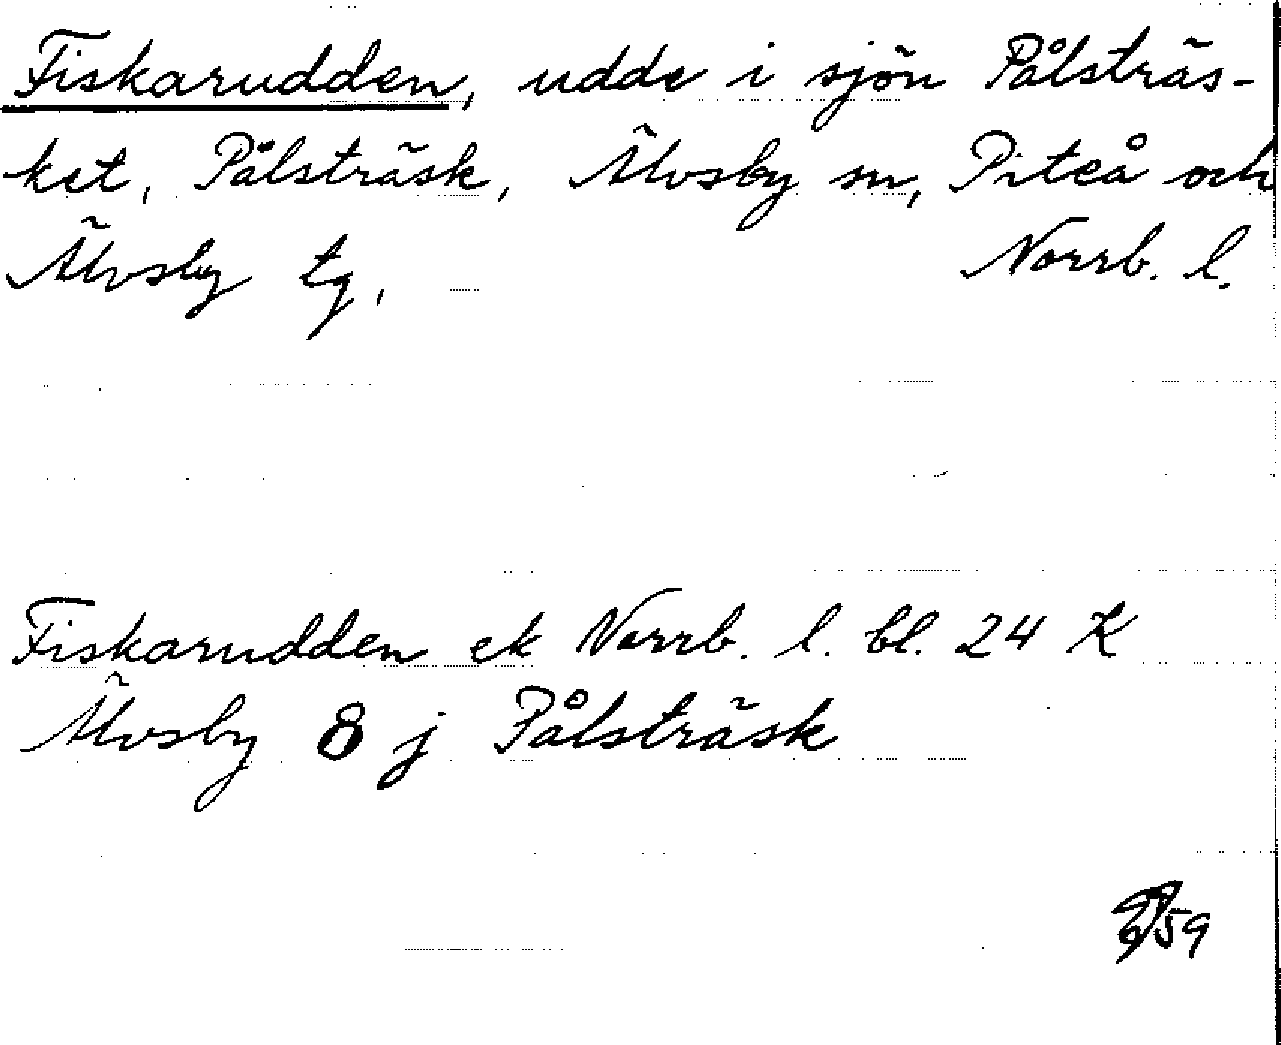 Fiskarudden, udde i sjön Pålsträs-
ket, Pålsträsk, Älvsby sn, Piteå och
Älvsby tg, Norrb. l.
Fiskarudden ek Norrb. l. bl. 24 K
Älvsby 8 j Pålsträsk
59